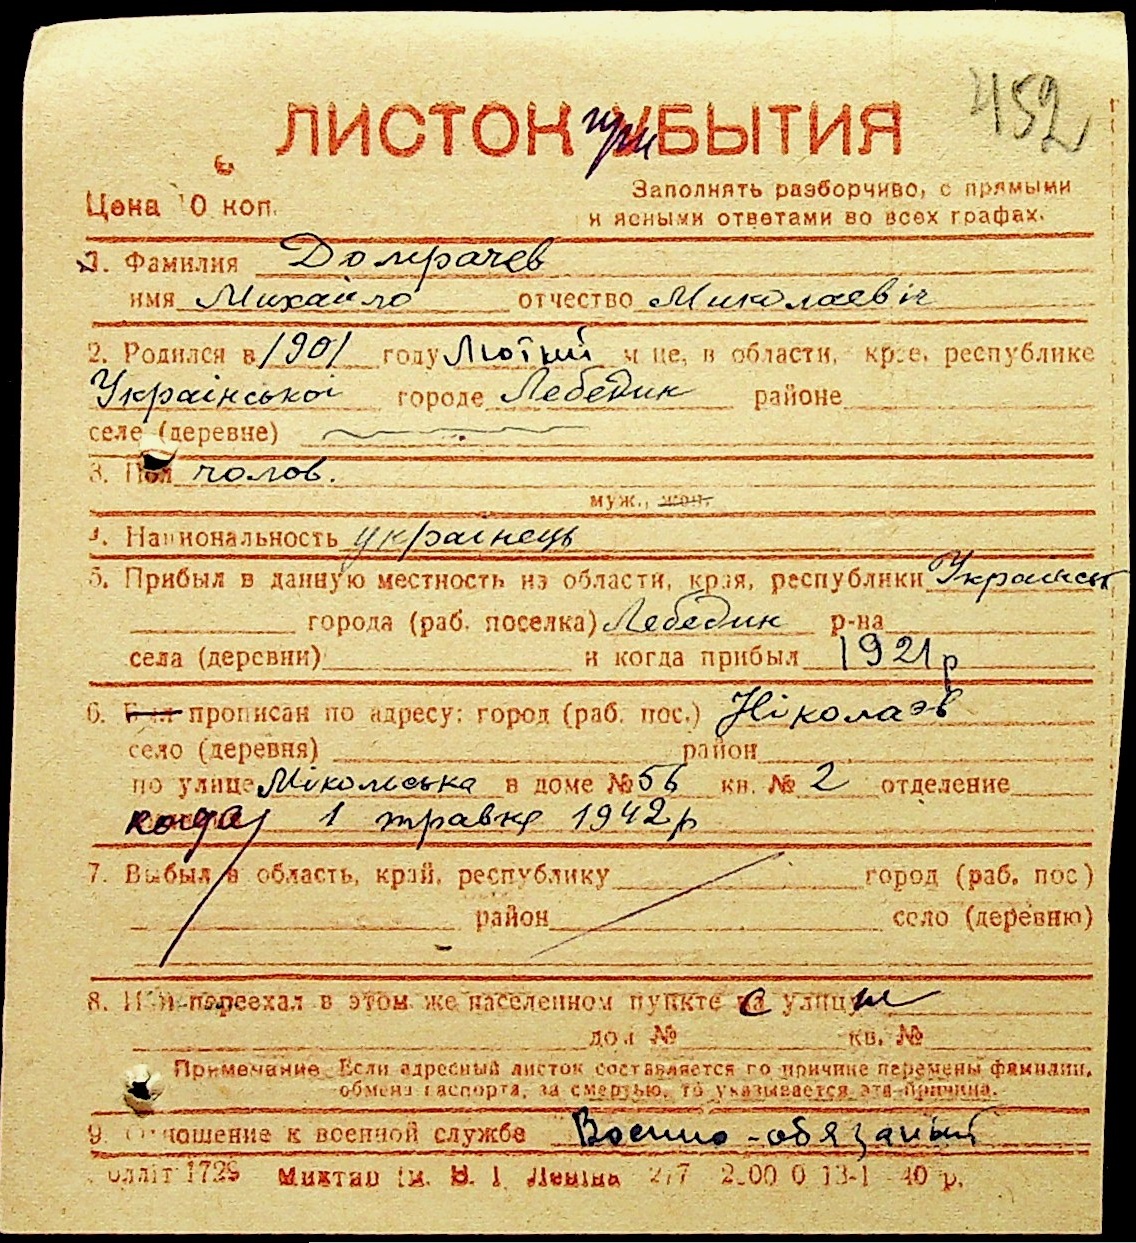 452
ЛИСТОК при БЫТИЯ
Цена 10 коп.
Заполнять разборчиво, с прямыми
и ясными ответами во всех графах.
1. Фамилия Домрачев
имя Михайло отчество Миколаевіч
2. Родился в 1901 году Лютий м це, в области, крае, республике
Української городе Лебедин районе
селе (деревне)
3. Пол чолов.
муж., жен.
4. Национальность українець
5. Прибыл в данную местность из области, края, республики Українськ
города (раб. поселка) Лебедин р-на
села (деревни) и когда прибыл 1921 р
6. Был прописан по адресу: город (раб. пос.) Ніколаэв
село (деревня) район
по улице Мікольська в доме № 56 кв. № 2 отделение
когда 1 травня 1942 р
7. Выбыл в область, край, республику город (раб. пос)
район село (деревню)
8. Или переехал в этом же населенном пункте с улицы
дом № кв. №
Примечание Если адресный листок составляется по причине перемены фамилии,
обмена паспорта, за смертью, то указывается эта причина.
9. Отношение к военной службе Военно-обязаный
олліт 1729 Миктип ім. В. І. Леніна 2.00 0 13-1 40 р.